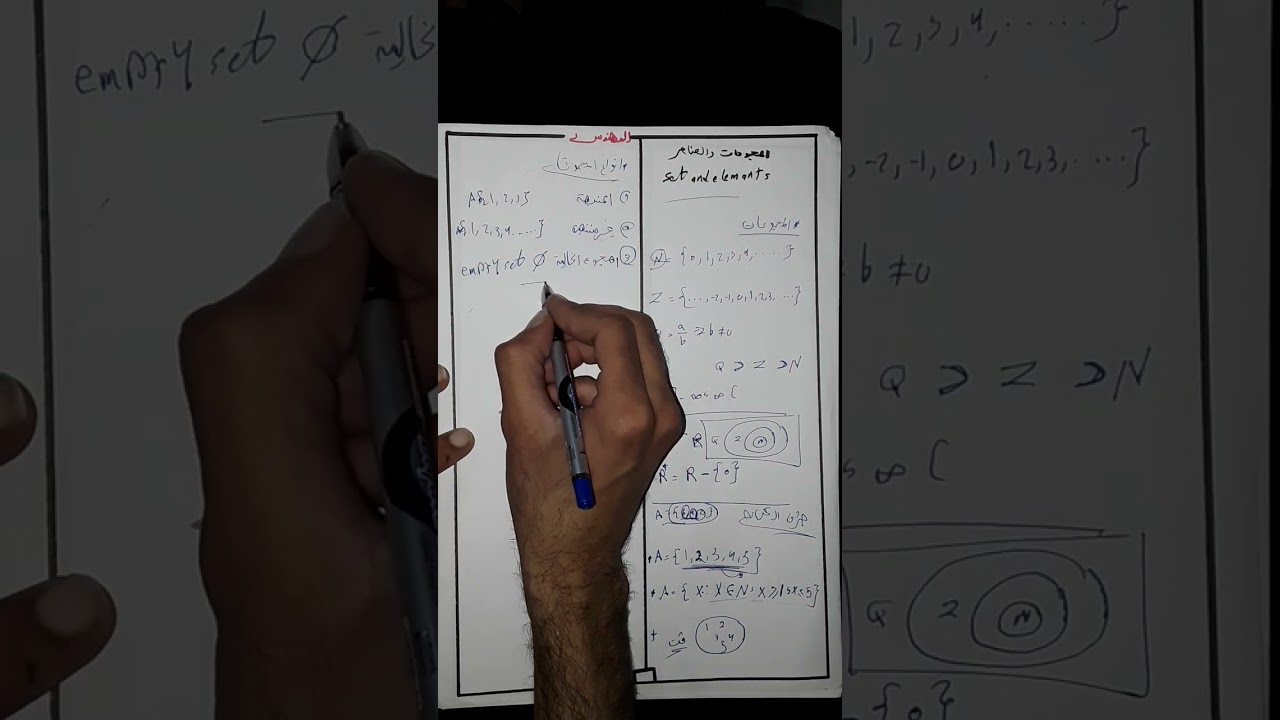 المهندس
المجموعات والعناصر
set and elemants
* المجموعات
N = {0, 1, 2, 3, 4, ......}
Z = {..., -2, -1, 0, 1, 2, 3, ...}
= a/b ⇒ b ≠ 0
Q ⊃ Z ⊃ N
R Q Z N
R* = R - {0}
A = {1, 2, 3, 4, 5}
* A = {x: x ∈ N, x ≥ 1 ≤ x ≤ 5}
1 2 3 4 5
* انواع المجموعات
① المنتهية A{1, 2, 3}
② غير منتهية A{1, 2, 3, 4, ....}
③ المجموعة الخالية ∅ empty set